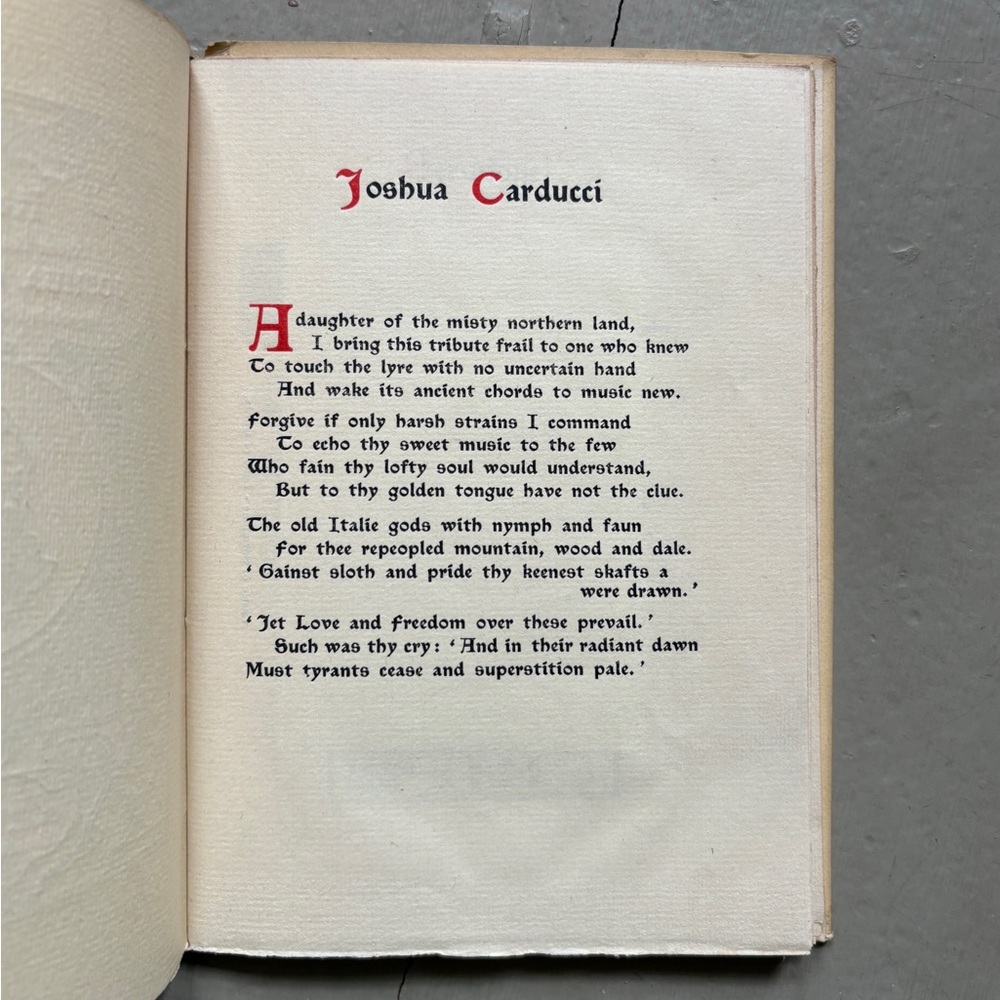 Joshua Carducci
A daughter of the misty northern land,
I bring this tribute frail to one who knew
To touch the lyre with no uncertain hand
And wake its ancient chords to music new.
Forgive if only harsh strains I command
To echo thy sweet music to the few
Who fain thy lofty soul would understand,
But to thy golden tongue have not the clue.
The old Italie gods with nymph and faun
For thee repeopled mountain, wood and dale.
‘ Gainst sloth and pride thy keenest skafts a
were drawn. ’
‘ Jet Love and Freedom over these prevail. ’
Such was thy cry : ‘ And in their radiant dawn
Must tyrants cease and superstition pale. ’